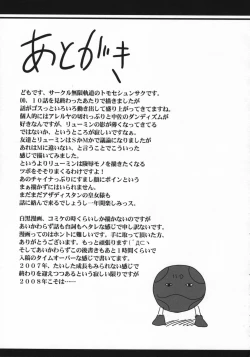 あとがき
どもです。サークル無限軌道のトモセシュンサクです。
00、10話を見終わったあたりで描きましたが
話がゴスっといろいろ動き出して盛り上がってきてますね。
個人的にはアレルヤの切れっぷりと中佐のダンディズムが
好きなんですが、リューミンの影が薄くなってきてる
のではないか、というところが寂しいですなぁ。
友達とリューミンはSかMかで議論になりましたが
あれはMに違いないね、と言うことでこういった
感じで描いてみました。
というよりリューミンは陵辱モノを描きたくなる
ツボをすごくまわるわけですよ!
あのチャイナっぷりにですし腕にボインとか
まぁ描かずにはおれません。
まだまだアザディスタンの皇女様も
話に絡んで来るでしょうし一年間楽しみっス。
白黒漫画、コミケの時くらいしか描かないのですが
あいかわらず話も台詞もヘタレな感じで申し訳ないです。
漫画ってのはホントに難しいです。手にとって頂いた方、
ありがとうございます。もっと頑張ります(´Д⊂ヽ
そしてあいかわらずこの後書きもあと1時間くらいで
入稿のタイムオーバーな感じで書いてます。
2007年、たいした成長もみられない感じで
終わりを迎えつつあるという寂しい限りですが
2008年こそは……